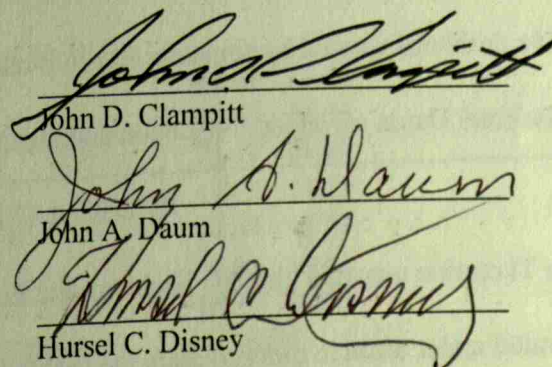 John D. Clampitt
John D. Clampitt
John A. Daum
John A. Daum
Hursel C. Disney
Hursel C. Disney